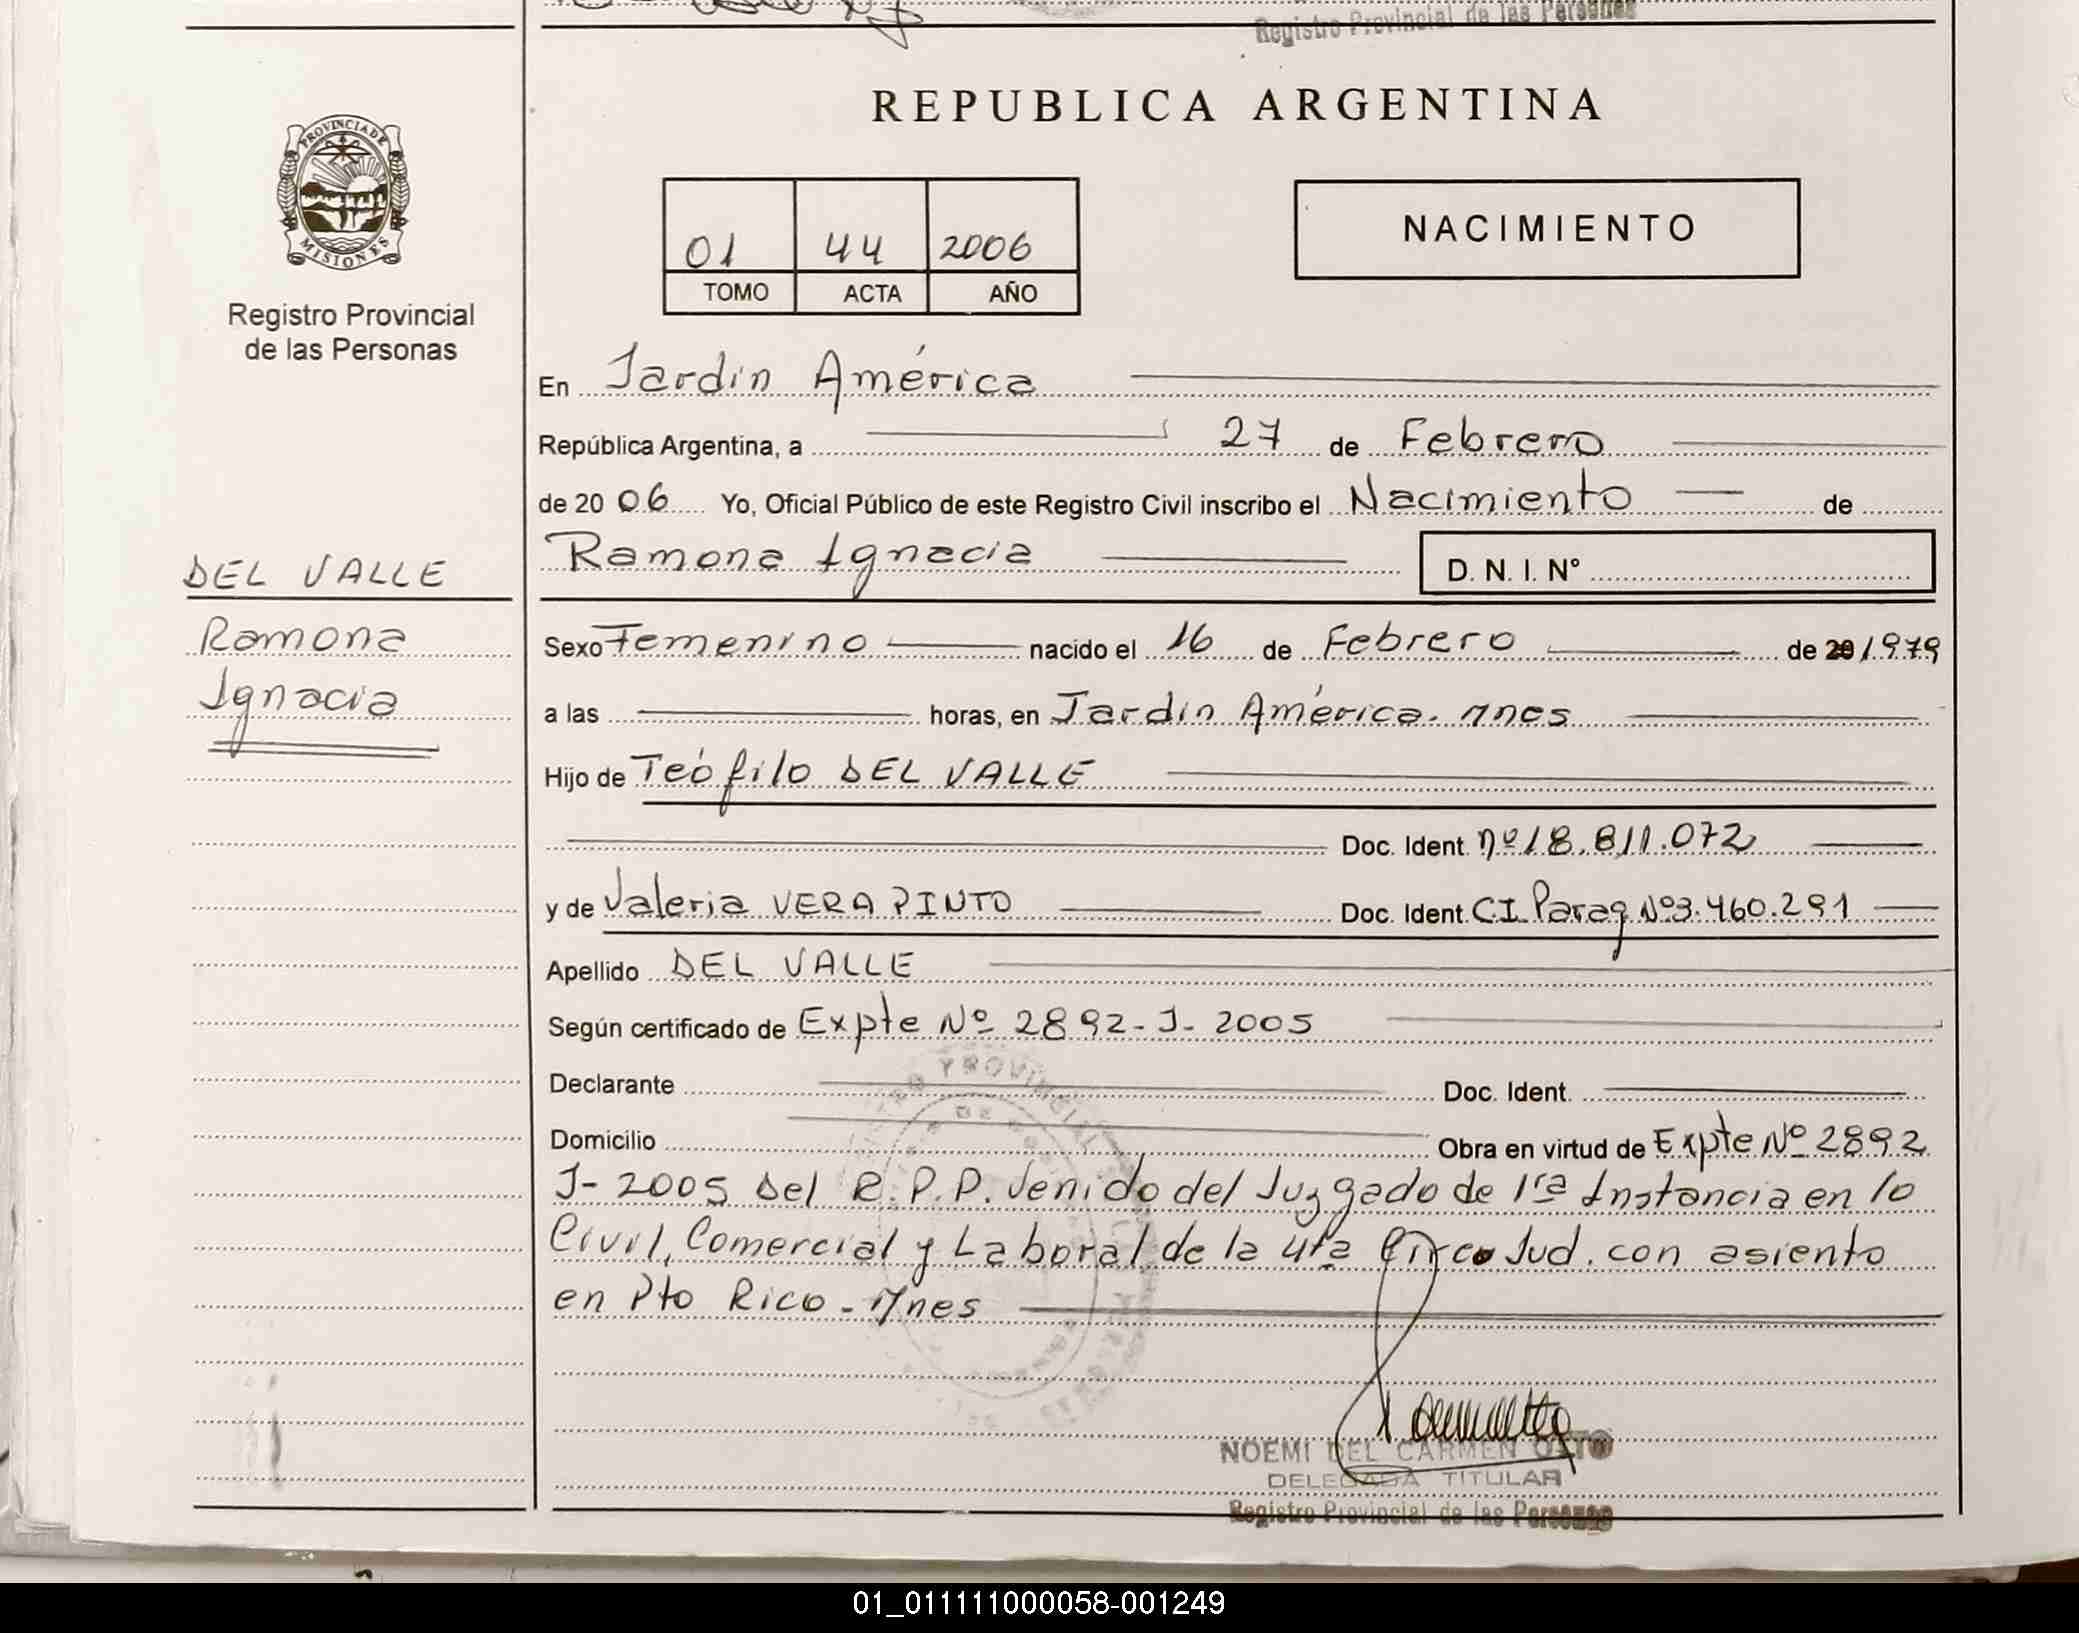 Registro Provincial de las Personas
REPUBLICA ARGENTINA
PROVINCIA DE
MISIONES
Registro Provincial
de las Personas
01 44 2006
TOMO ACTA AÑO
NACIMIENTO
En Jardin América
República Argentina, a 27 de Febrero
de 20 06 Yo, Oficial Público de este Registro Civil inscribo el Nacimiento de
Ramona Ignacia D. N. I. N°
DEL VALLE
Ramona
Ignacia
Sexo Femenino nacido el 16 de Febrero de 20 1979
a las horas, en Jardin América. Mnes
Hijo de Teófilo DEL VALLE
Doc. Ident. Nº 18.811.072
y de Valeria VERA PINTO Doc. Ident. C.I. Parag Nº 3.460.291
Apellido DEL VALLE
Según certificado de Expte Nº 2892-J-2005
Declarante Doc. Ident.
Domicilio Obra en virtud de Expte Nº 2892
J-2005 del R.P.P. Venido del Juzgado de 1ra Instancia en lo
Civil, Comercial y Laboral de la 4ta Circ Jud. con asiento
en Pto Rico - Mnes
NOEMI DEL CARMEN OTTO
DELEGADA TITULAR
Registro Provincial de las Personas
01_011111000058-001249